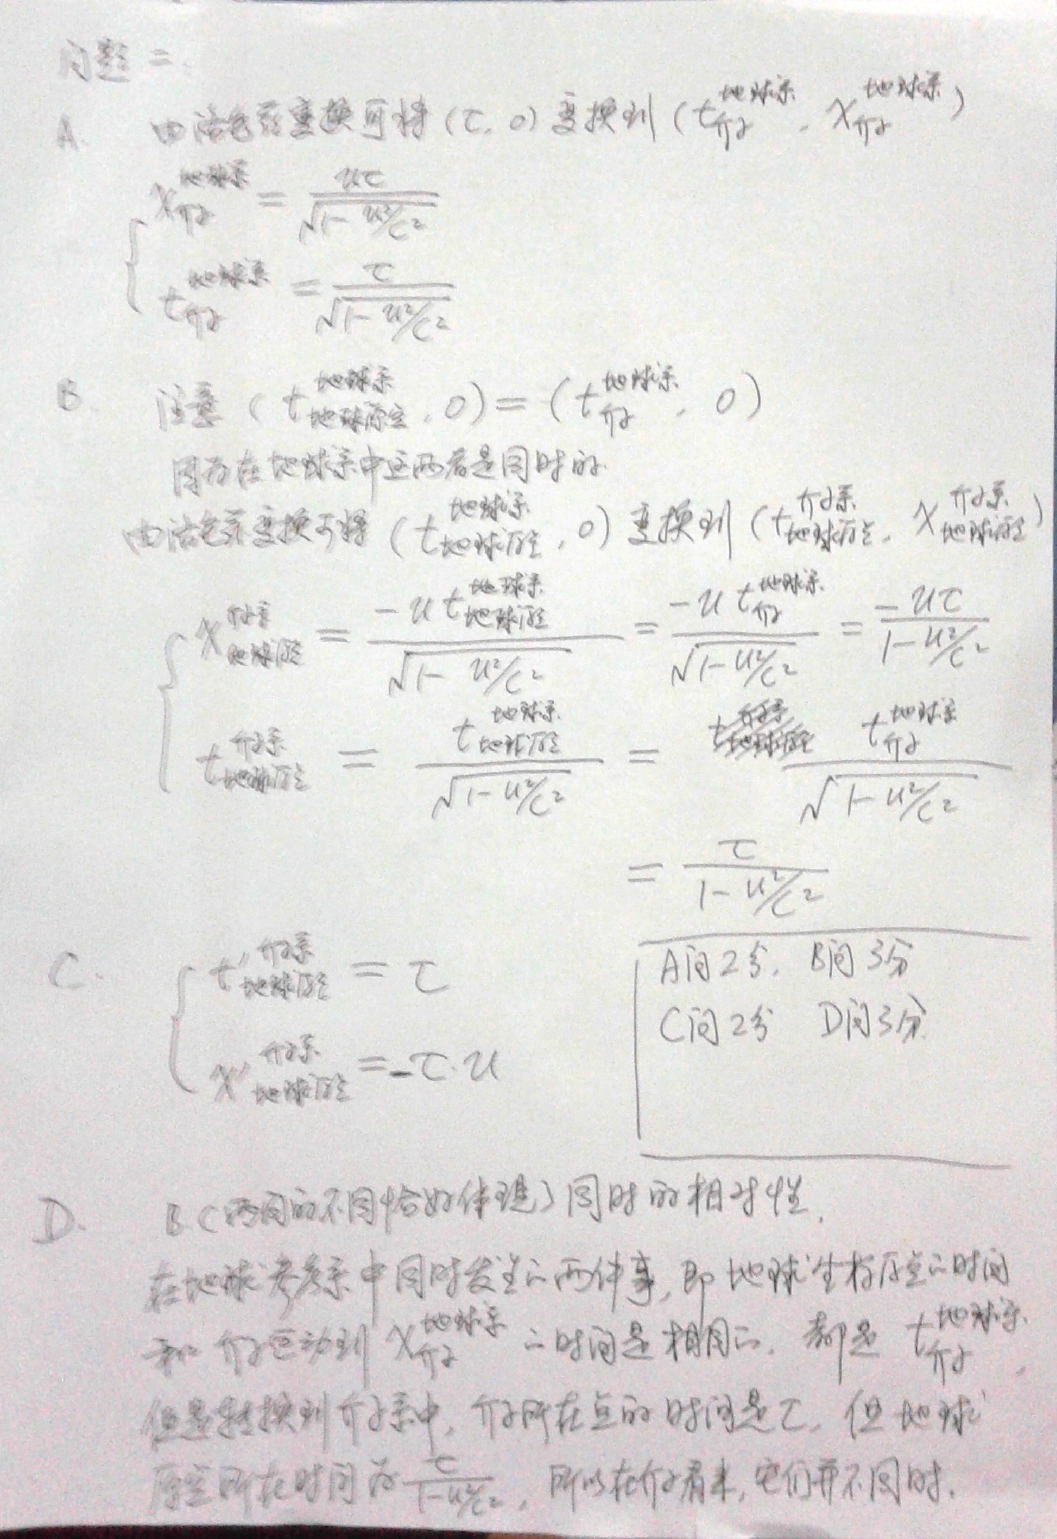 问题二
A. 由洛仑兹变换可将 (τ, 0) 变换到 (t介子^地球系, x介子^地球系)
x介子^地球系 = uτ / √(1 - u²/c²)
t介子^地球系 = τ / √(1 - u²/c²)
B. 注意 (t地球原点^地球系, 0) = (t介子^地球系, 0)
因为在地球系中这两者是同时的.
由洛仑兹变换可将 (t地球原点^地球系, 0) 变换到 (t地球原点^介子系, x地球原点^介子系)
x地球原点^介子系 = -u t地球原点^地球系 / √(1 - u²/c²) = -u t介子^地球系 / √(1 - u²/c²) = -uτ / (1 - u²/c²)
t地球原点^介子系 = t地球原点^地球系 / √(1 - u²/c²) = t介子^地球系 / √(1 - u²/c²)
= τ / (1 - u²/c²)
C. t'地球原点^介子系 = τ
x'地球原点^介子系 = -τ·u
A问2分, B问3分
C问2分 D问3分.
D. B C两问的不同恰好体现了同时的相对性.
在地球参考系中同时发生的两件事, 即地球坐标原点的时间
和介子运动到 x介子^地球系 的时间是相同的, 都是 t介子^地球系,
但是转换到介子系中, 介子所在点的时间是τ, 但地球
原点所在时间为 τ / (1 - u²/c²), 所以在介子看来, 它们并不同时.